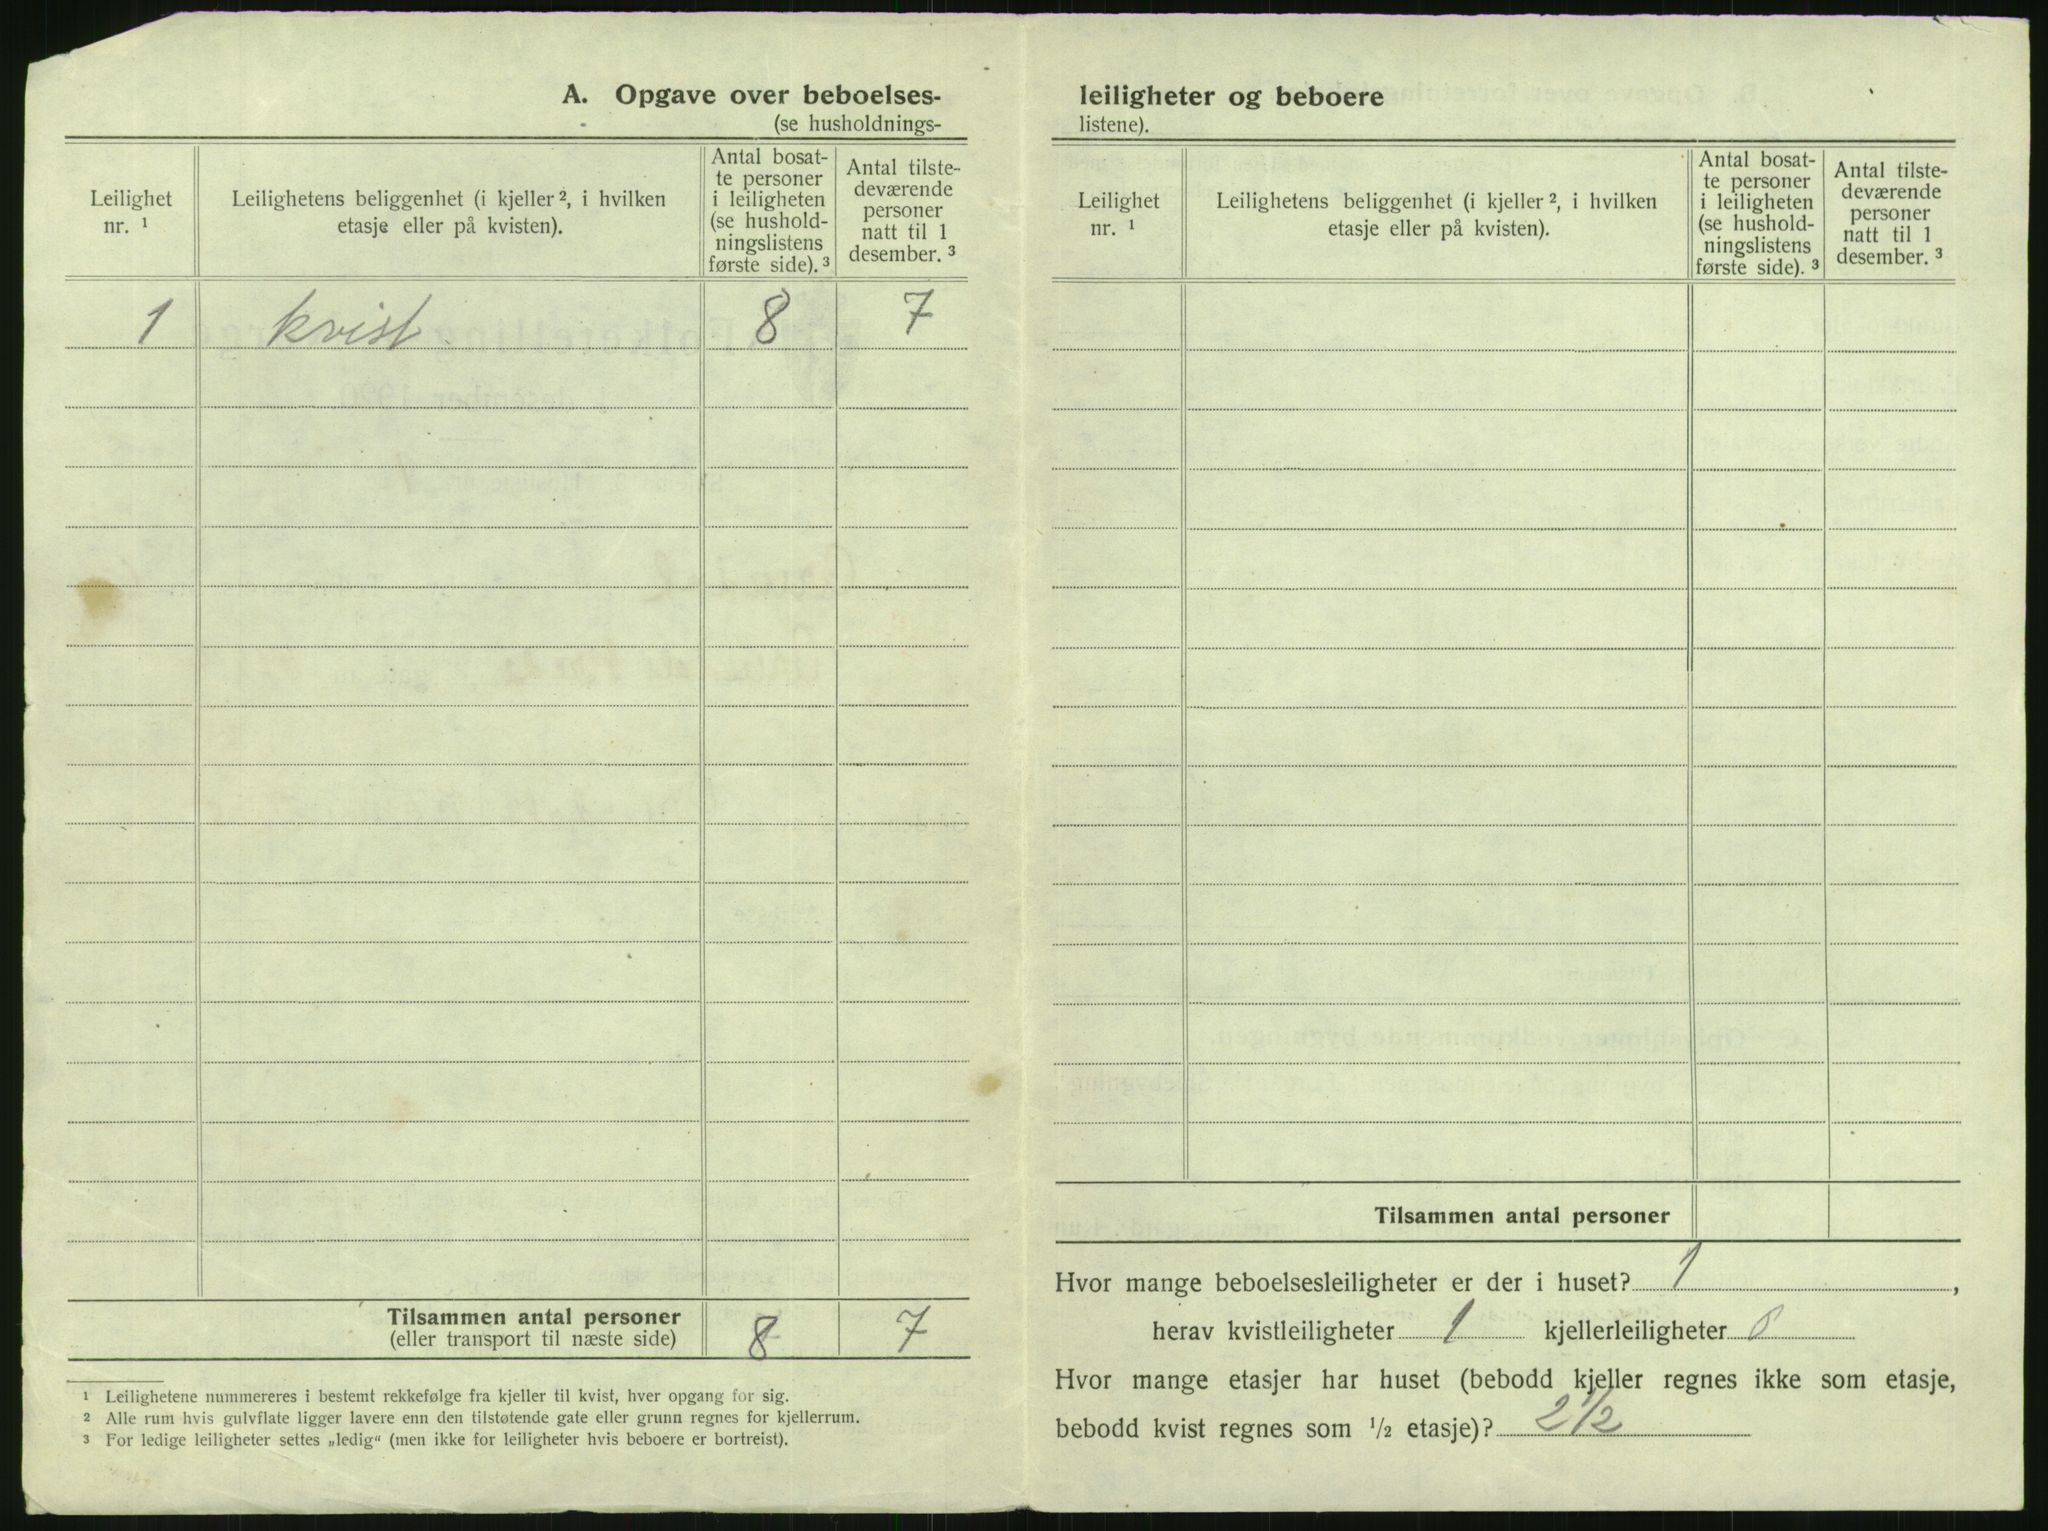 A. Opgave over beboelses-
(se husholdnings-
Leilighet nr. ¹
Leilighetens beliggenhet (i kjeller ², i hvilken etasje eller på kvisten).
Antal bosat-
te personer
i leiligheten
(se hushold-
ningslistens
første side). ³
Antal tilste-
deværende
personer
natt til 1
desember. ³
1 kvist 8 7
Tilsammen antal personer 8 7
(eller transport til næste side)
¹ Leilighetene nummereres i bestemt rekkefølge fra kjeller til kvist, hver opgang for sig.
² Alle rum hvis gulvflate ligger lavere enn den tilstøtende gate eller grunn regnes for kjellerrum.
³ For ledige leiligheter settes „ledig“ (men ikke for leiligheter hvis beboere er bortreist).
leiligheter og beboere
listene).
Leilighet nr. ¹
Leilighetens beliggenhet (i kjeller ², i hvilken etasje eller på kvisten).
Antal bosat-
te personer
i leiligheten
(se hushold-
ningslistens
første side). ³
Antal tilste-
deværende
personer
natt til 1
desember. ³
Tilsammen antal personer
Hvor mange beboelsesleiligheter er der i huset? 1,
herav kvistleiligheter 1 kjellerleiligheter 0
Hvor mange etasjer har huset (bebodd kjeller regnes ikke som etasje,
bebodd kvist regnes som ½ etasje)? 2 ½